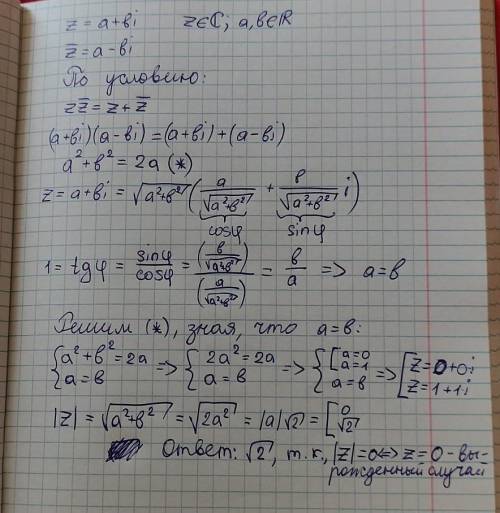 z = a + bi z∈ℂ; a,b∈ℝ
z̅ = a - bi
По условию:
zz̅ = z + z̅
(a+bi)(a-bi) = (a+bi) + (a-bi)
a² + b² = 2a (*)
z = a + bi = √(a²+b²) (a/√(a²+b²) + b/√(a²+b²) i)
cosφ sinφ
1 = tgφ = sinφ/cosφ = (b/√(a²+b²))/(a/√(a²+b²)) = b/a => a = b
Решим (*), зная, что a = b:
{a² + b² = 2a; a = b => {2a² = 2a; a = b => {[a=0; a=1; a = b => [z = 0+0i; z = 1+1i
|z| = √(a²+b²) = √(2a²) = |a|√2 = [0; √2
Ответ: √2, т.к. |z|=0 <=> z = 0 - вы-
рожденный случай